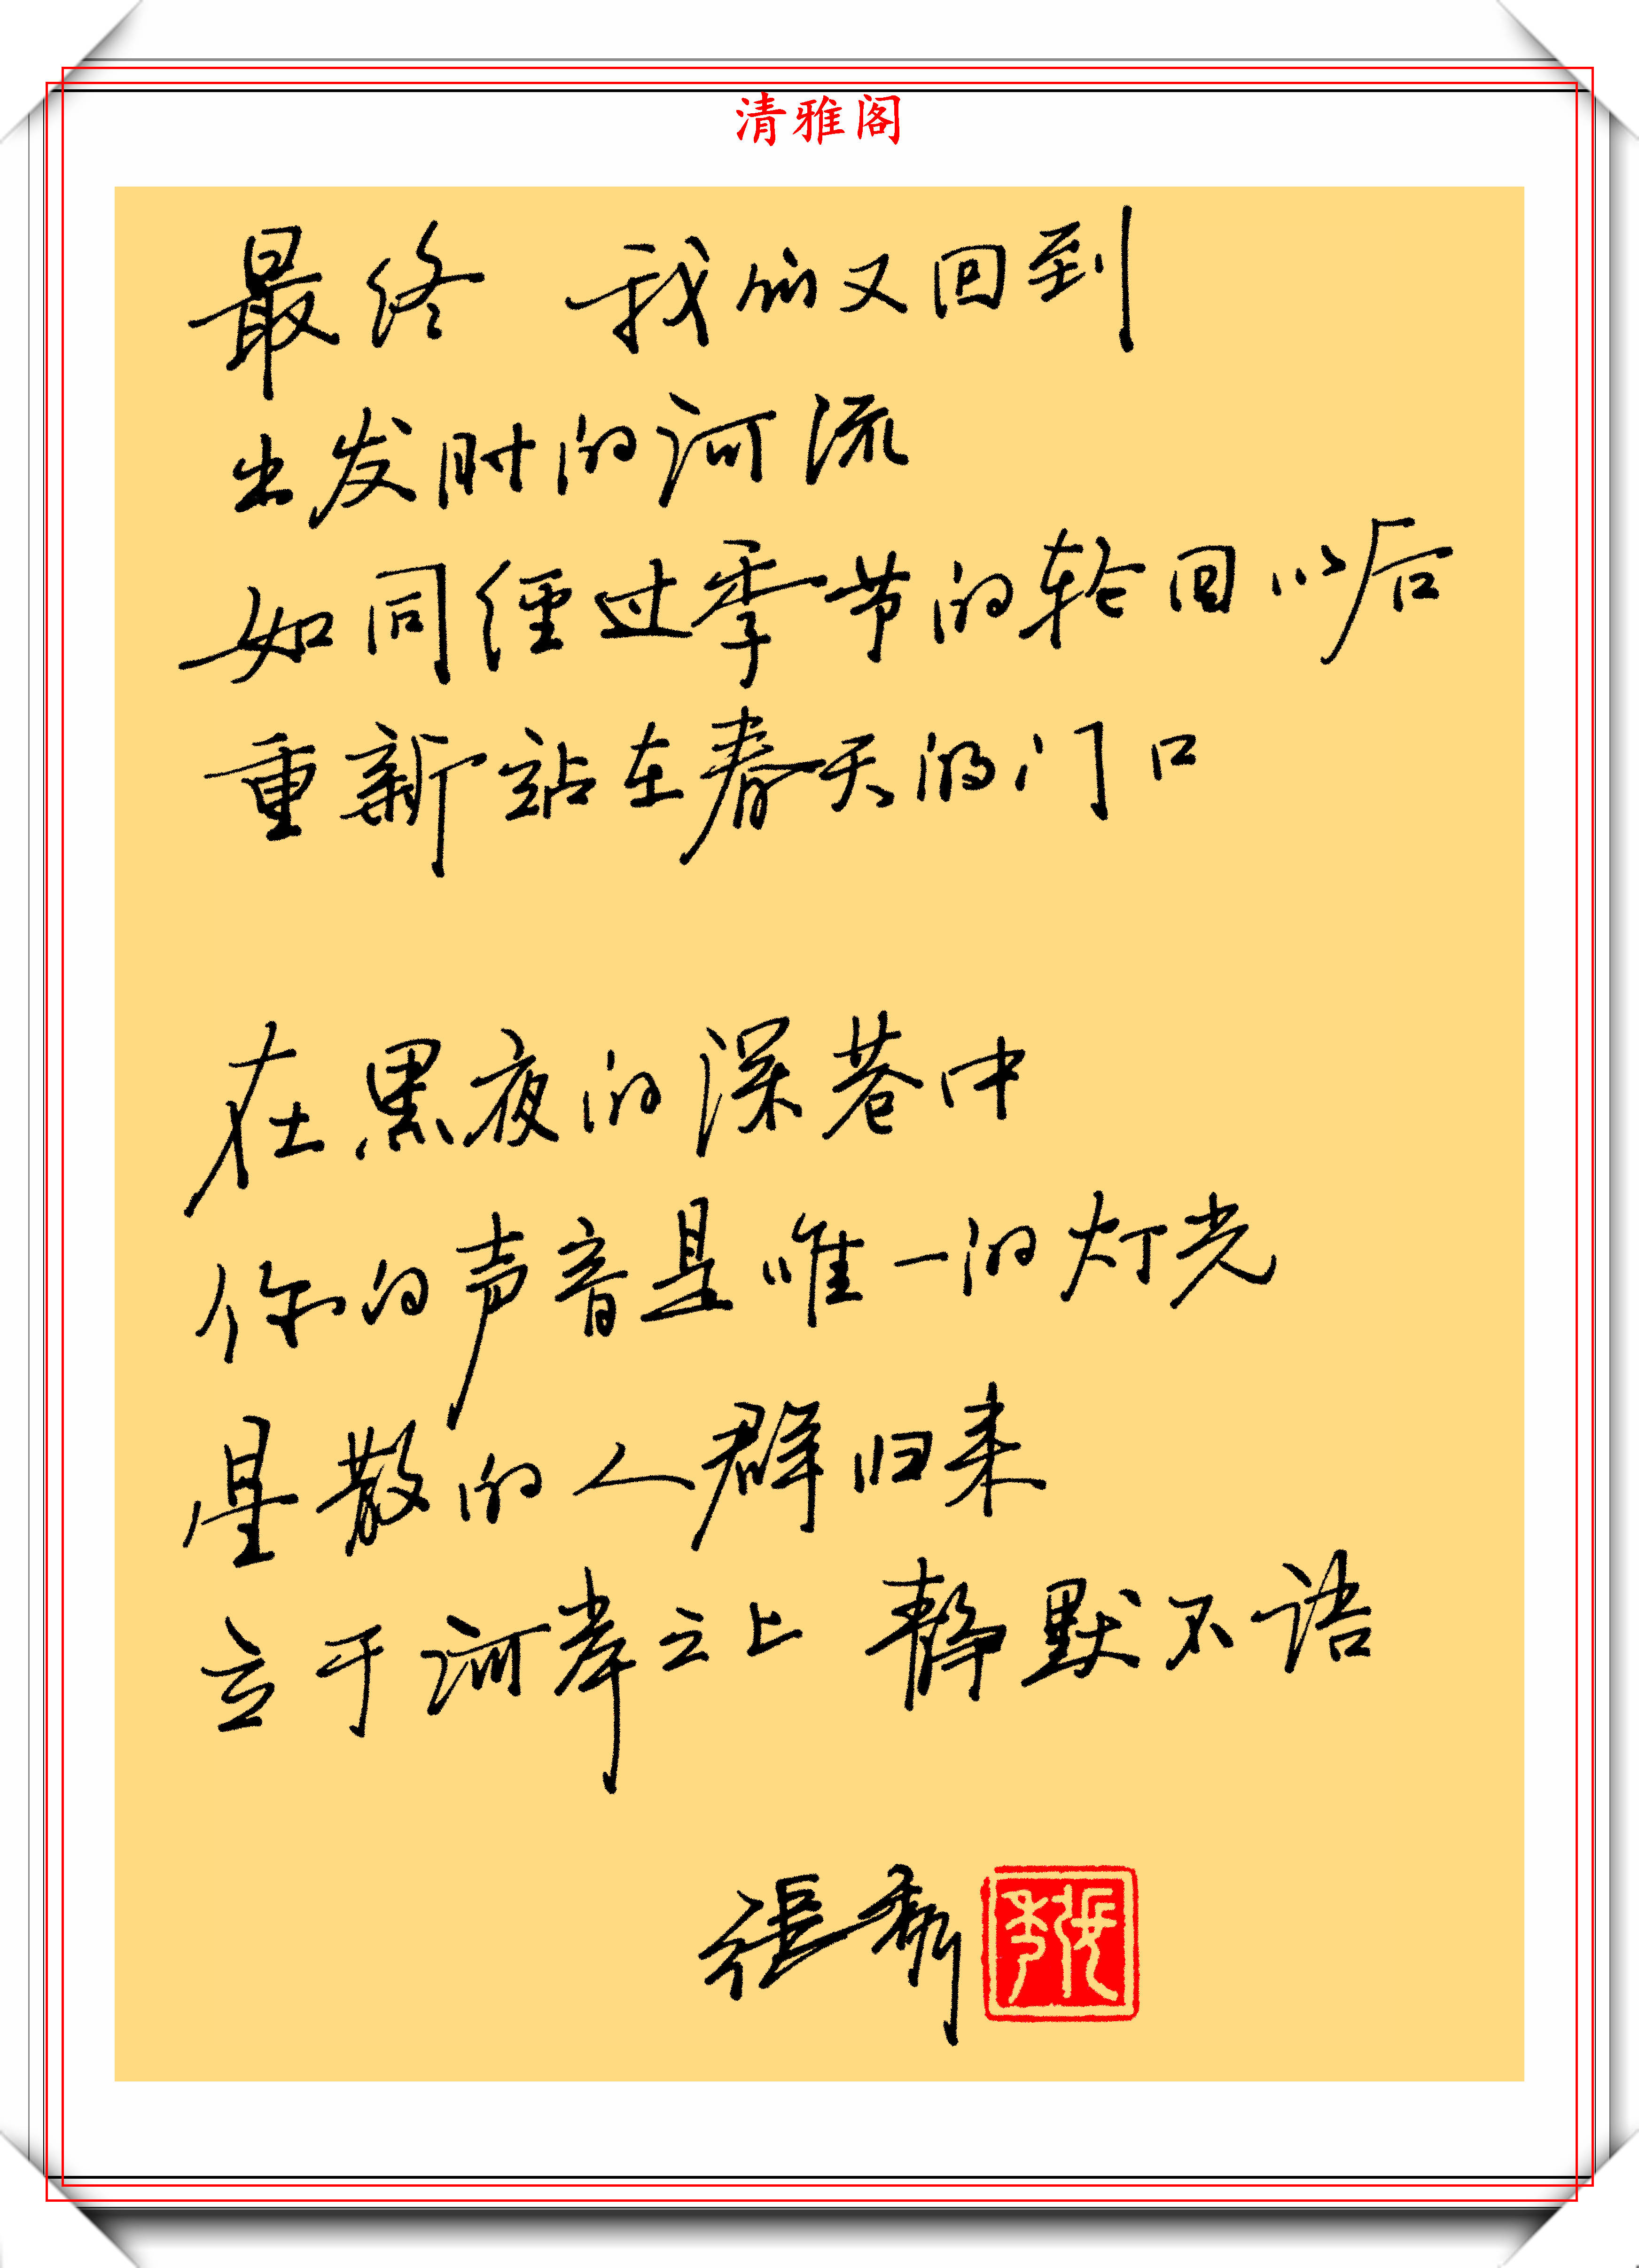 清雅阁
最终 我们又回到
出发时的河流
如同经过季节的轮回以后
重新站在春天的门口
在黑夜的深巷中
你的声音是唯一的灯光
星散的人群归来
立于河岸之上 静默不语
張秀
張秀